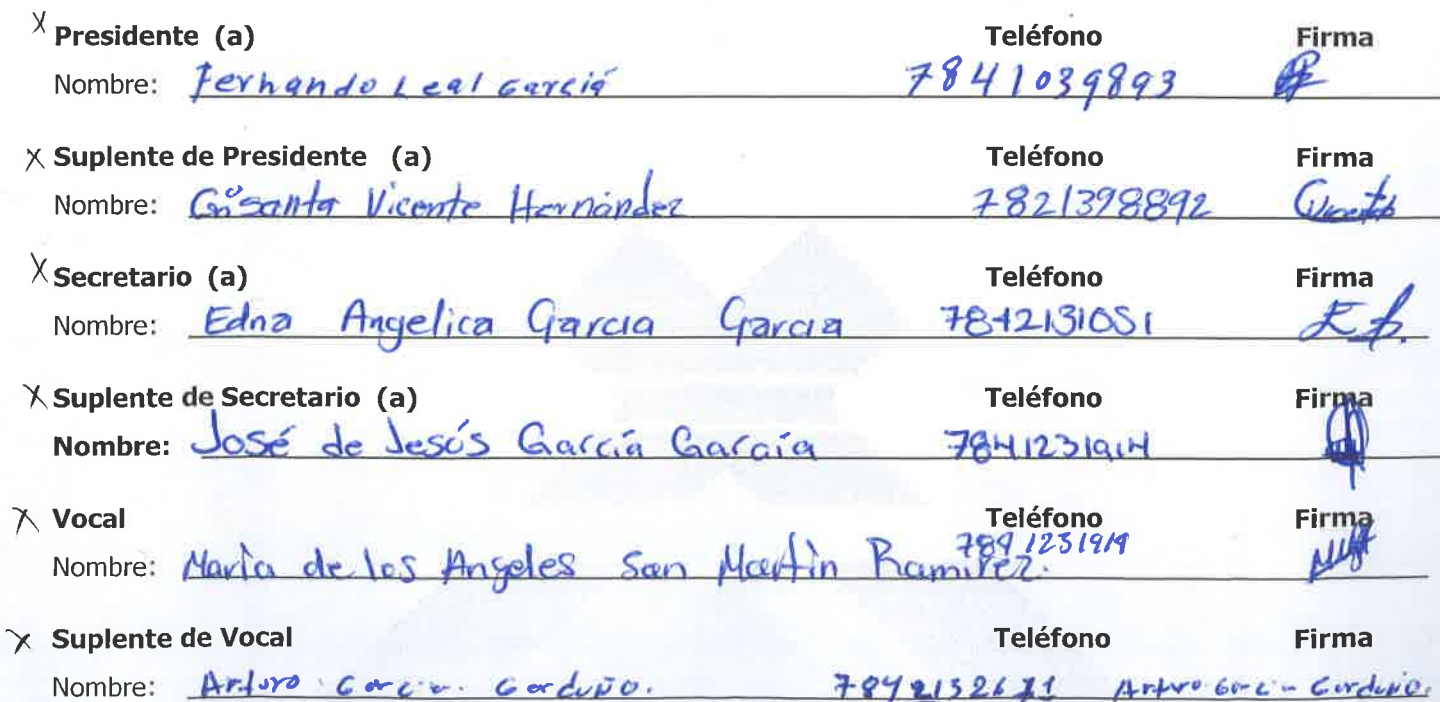 X Presidente (a) Teléfono Firma
Nombre: Fernando Leal García 7841039893
X Suplente de Presidente (a) Teléfono Firma
Nombre: Crisanta Vicente Hernández 7821398892
X Secretario (a) Teléfono Firma
Nombre: Edna Angelica Garcia Garcia 7842131051
X Suplente de Secretario (a) Teléfono Firma
Nombre: José de Jesús García García 7841231914
X Vocal Teléfono Firma
Nombre: María de los Angeles San Martín Ramírez. 7841231919
X Suplente de Vocal Teléfono Firma
Nombre: Arturo Garcia Garduño. Arturo Garcia Garduño.